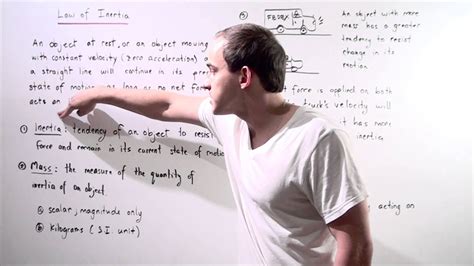 Law of Inertia
An object at rest, or an object moving
with constant velocity (zero acceleration)
a straight line will continue in its
state of motion as long or no net
acts on
① Inertia: tendency of an object to resist
force and remain in its current state of motion
② Mass: the measure of the quantity of
inertia of an object.
ⓐ scalar, magnitude only
ⓑ kilograms (S.I. unit)
③
An object with more
mass has a greater
tendency to resist
change in its
motion
force is applied on both
truck's velocity will
it has more
inertia
acting on